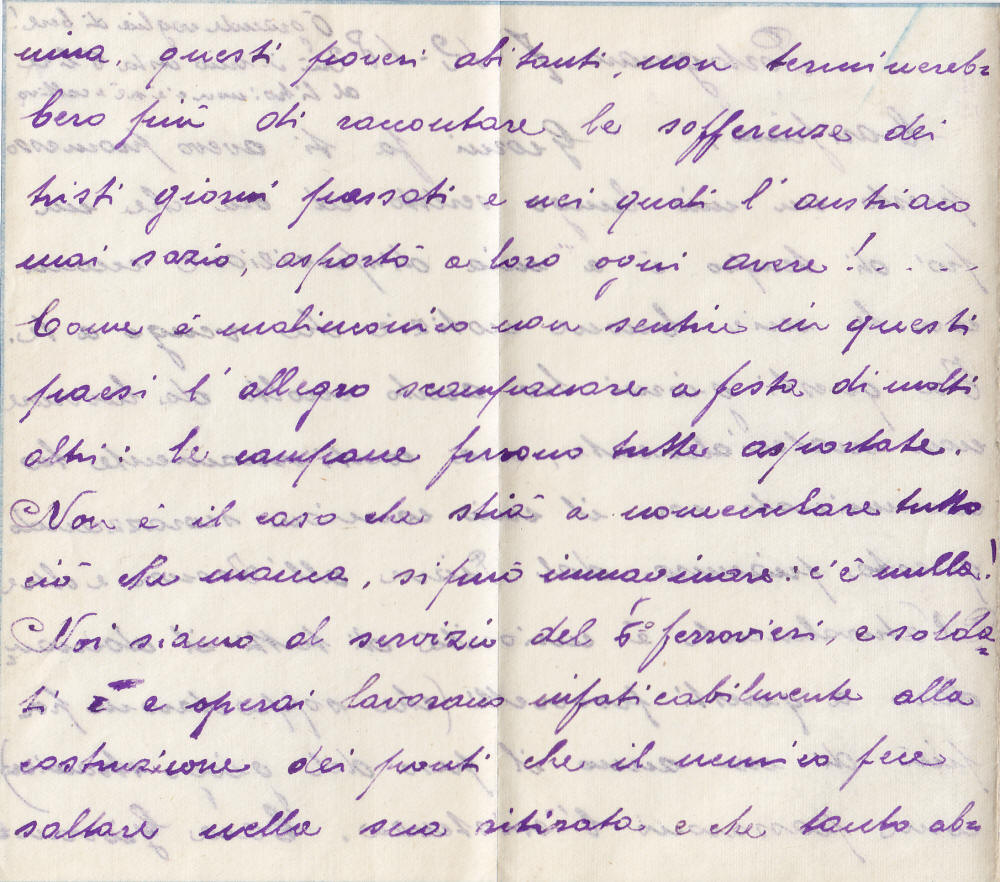 nina, questi poveri abitanti, non terminereb=
bero più di raccontare le sofferenze dei
tristi giorni passati e nei quali l'austriaco
mai sazio, asportò a loro ogni avere!.....
Come è malinconico non sentire in questi
paesi l'allegro scampanare a festa di molti
altri: le campane furono tutte asportate.
Non è il caso che stia a nomenclare tutto
ciò che manca, si può immaginare: c'è nulla!
Noi siamo al servizio del 6° ferrovieri, e solda=
ti e operai lavorano infaticabilmente alla
costruzione dei ponti che il nemico fece
saltare nella sua ritirata e che tanto ab=